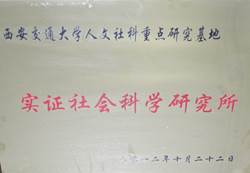 西安交通大学人文社科重点研究基地
实证社会科学研究所
一二年十月二十二日